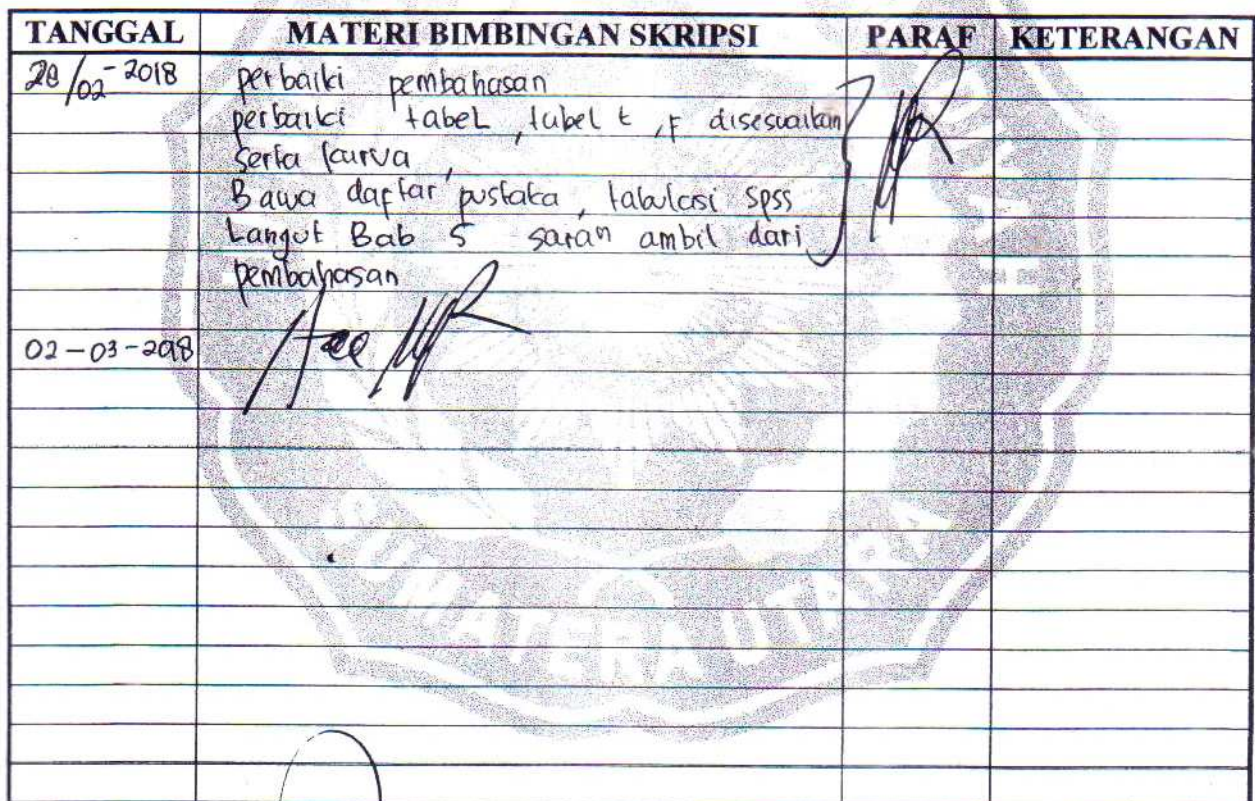 TANGGAL MATERI BIMBINGAN SKRIPSI PARAF KETERANGAN
28/02-2018 perbaiki pembahasan
perbaiki tabel, tabel t, F disesuaikan
serta kurva,
Bawa daftar pustaka, tabulasi SPSS
Langut Bab 5 saran ambil dari
pembahasan
02-03-2018 Acc
SUMATERA UTARA